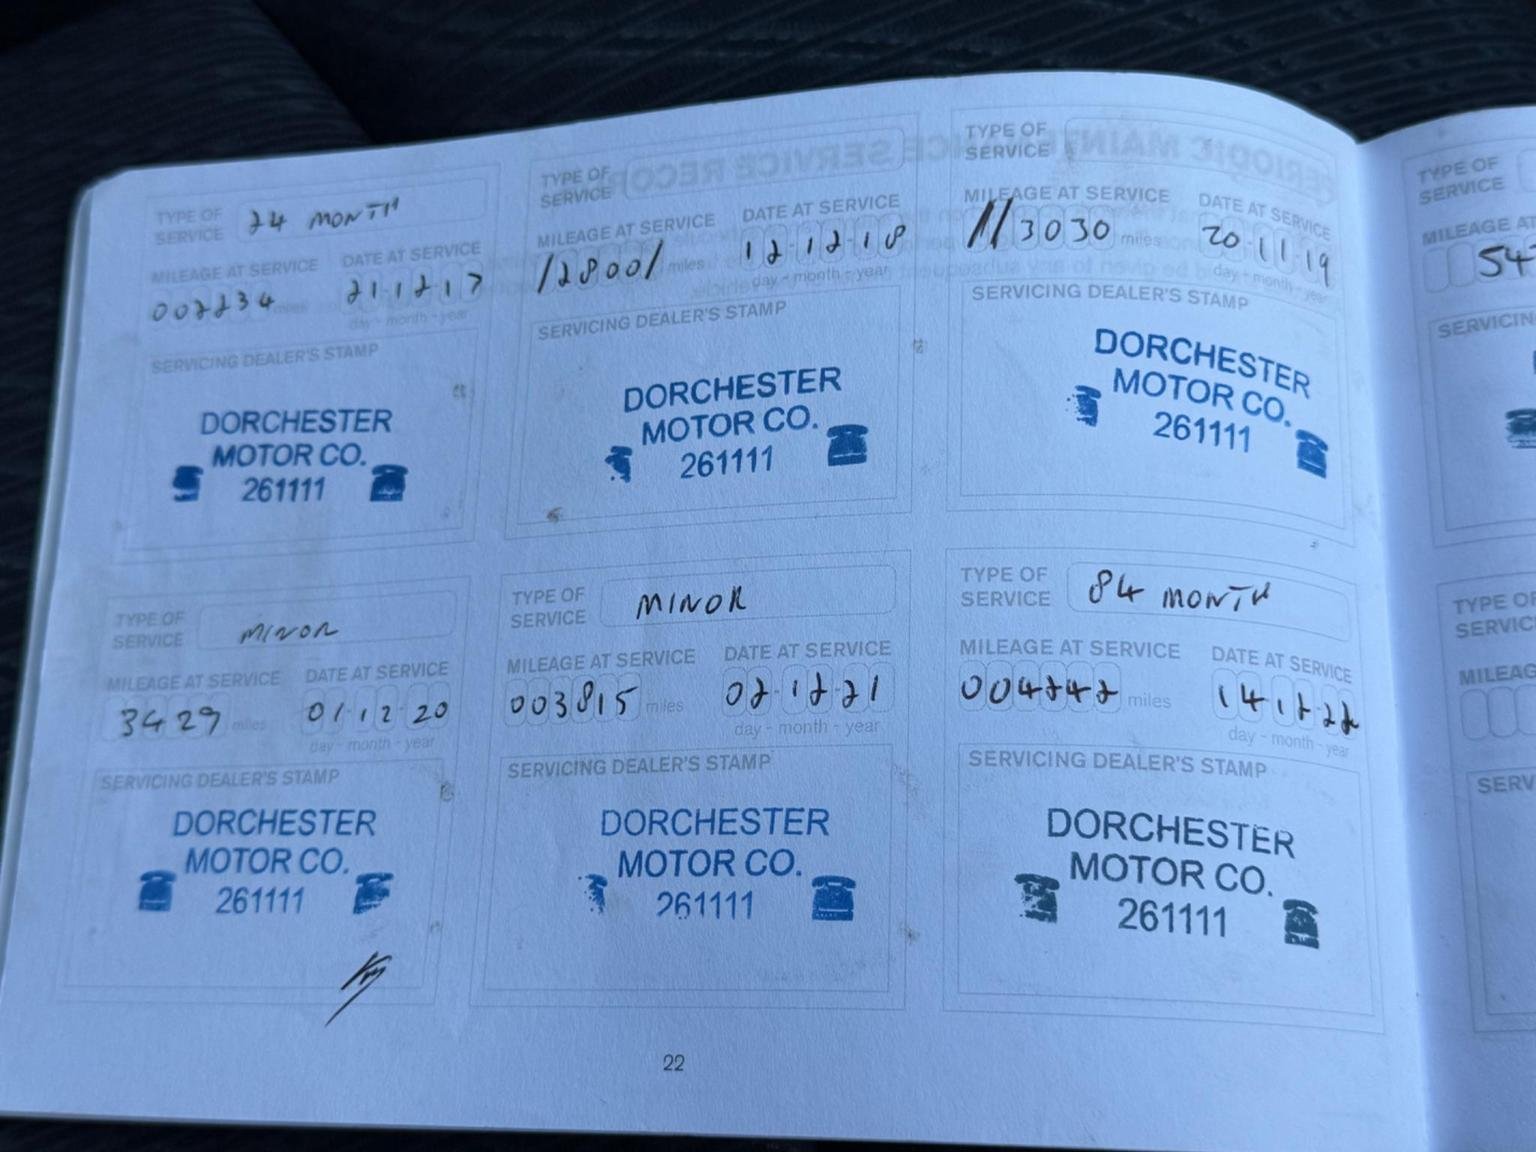 TYPE OF SERVICE 24 MONTH
MILEAGE AT SERVICE DATE AT SERVICE
002234 miles 21·12·17
day - month - year
SERVICING DEALER'S STAMP
DORCHESTER
MOTOR CO.
261111
TYPE OF SERVICE
MILEAGE AT SERVICE DATE AT SERVICE
/2800/ miles 12·12·18
day - month - year
SERVICING DEALER'S STAMP
DORCHESTER
MOTOR CO.
261111
TYPE OF SERVICE
MILEAGE AT SERVICE DATE AT SERVICE
//3030 miles 20·11·19
day - month - year
SERVICING DEALER'S STAMP
DORCHESTER
MOTOR CO.
261111
TYPE OF SERVICE MINOR
MILEAGE AT SERVICE DATE AT SERVICE
3429 miles 01·12·20
day - month - year
SERVICING DEALER'S STAMP
DORCHESTER
MOTOR CO.
261111
TYPE OF SERVICE MINOR
MILEAGE AT SERVICE DATE AT SERVICE
003815 miles 02·12·21
day - month - year
SERVICING DEALER'S STAMP
DORCHESTER
MOTOR CO.
261111
TYPE OF SERVICE 84 MONTH
MILEAGE AT SERVICE DATE AT SERVICE
004242 miles 14·12·22
day - month - year
SERVICING DEALER'S STAMP
DORCHESTER
MOTOR CO.
261111
22
TYPE OF
SERVICE
MILEAGE
54
TYPE OF
MILEAG
SERV